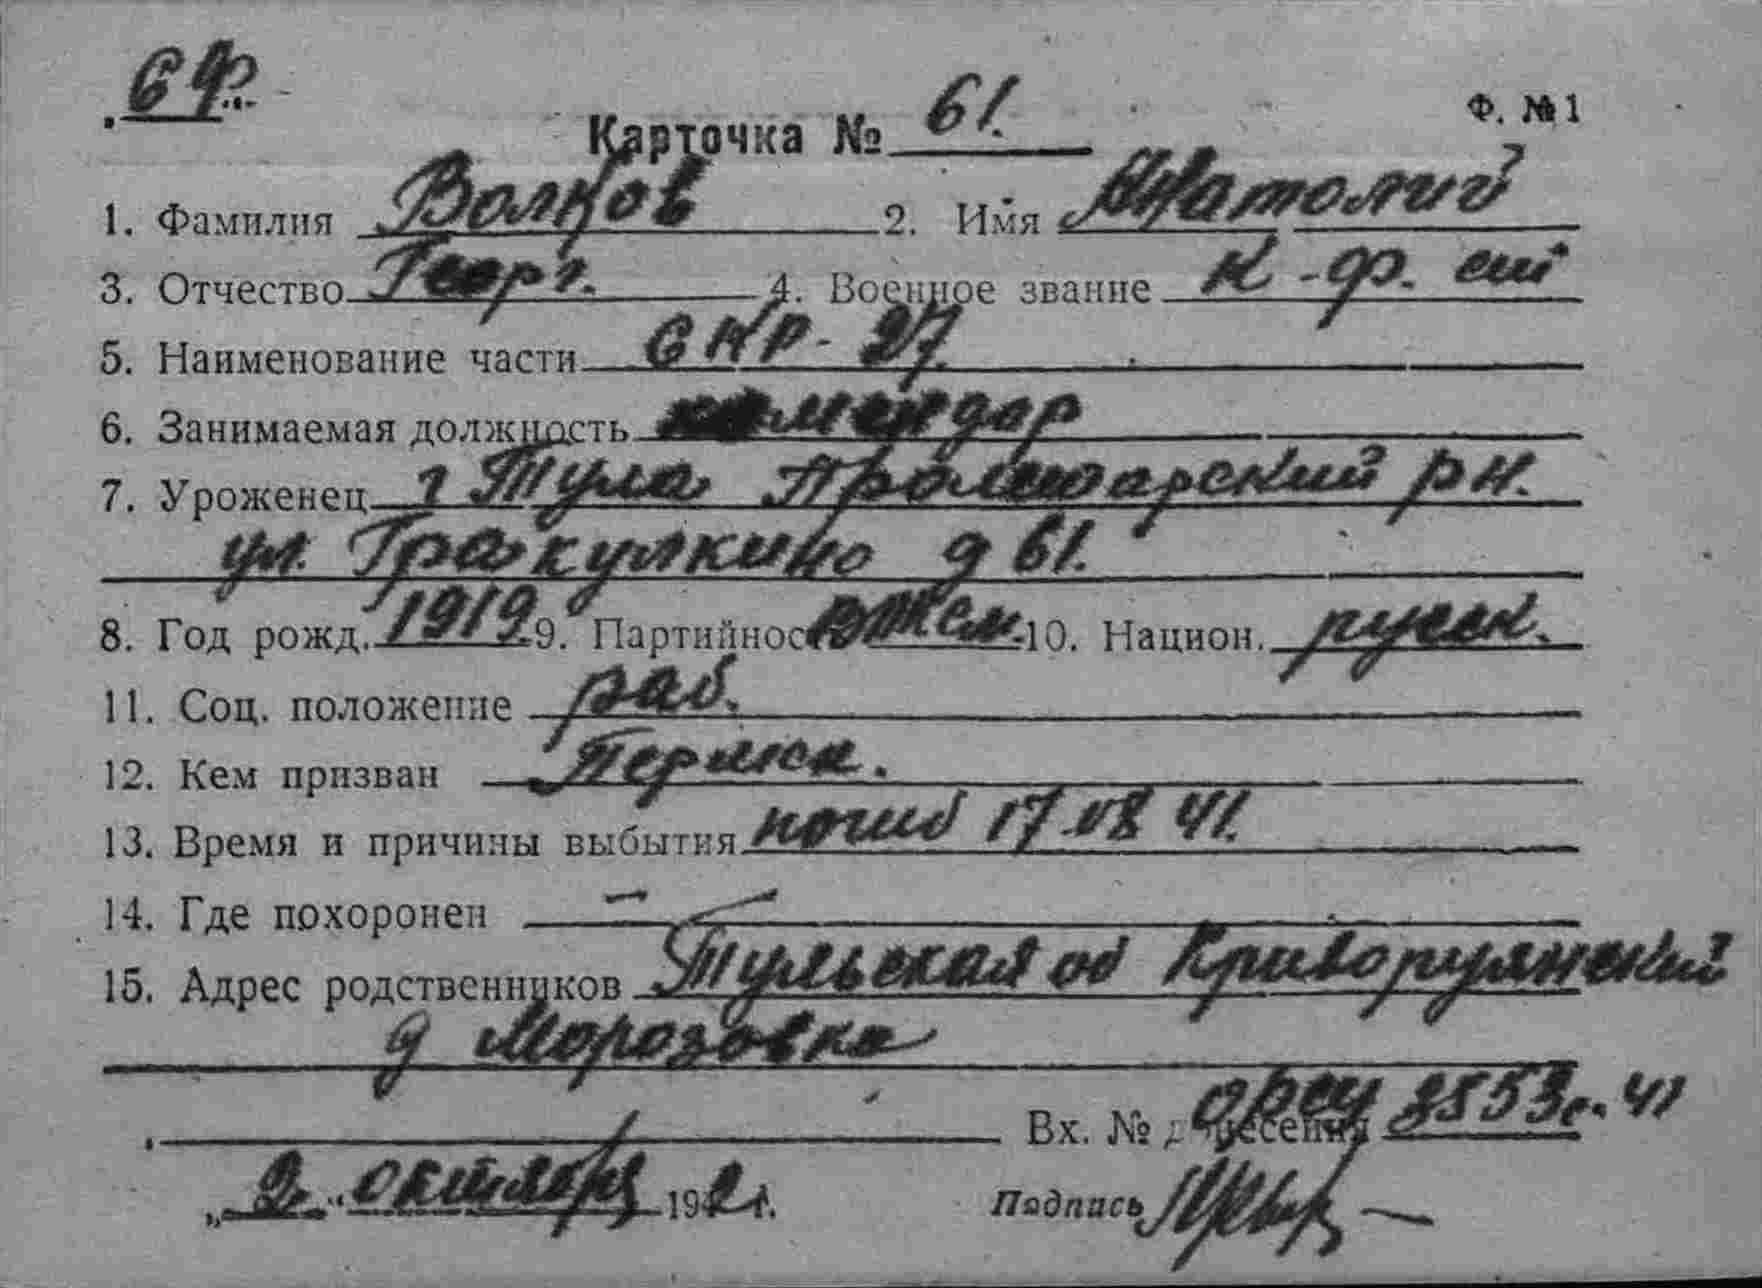 СФ.
Ф. № 1
Карточка № 61.
1. Фамилия Волков 2. Имя Анатолий
3. Отчество Георг. 4. Военное звание к-ф.
5. Наименование части СКР-27
6. Занимаемая должность комендор
7. Уроженец г Тула Пролетарский рн.
ул. д 61.
8. Год рожд. 1919 9. Партийность ВЛКСМ 10. Национ. русск.
11. Соц. положение раб.
12. Кем призван
13. Время и причины выбытия погиб 17.08 41.
14. Где похоронен —
15. Адрес родственников Тульская об
д Морозовка
Вх. № донесения орсу 3553с. 41
„2“ октября 194 г. Подпись